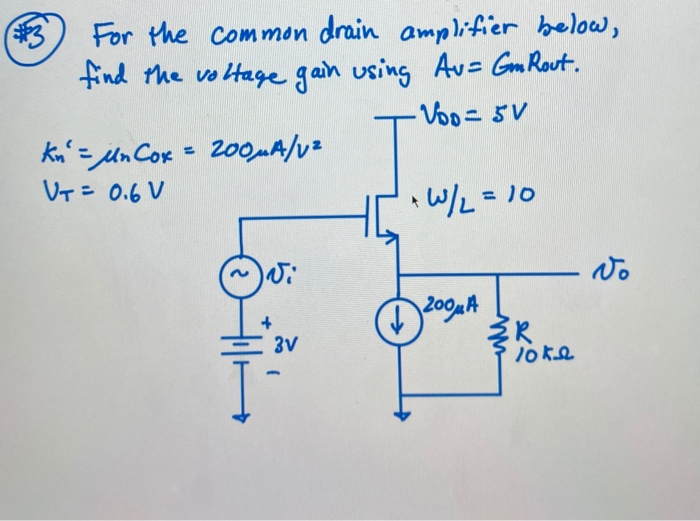 #3 For the common drain amplifier below,
find the voltage gain using Av = GmRout.
VDD = 5V
Kn' = μnCox = 200μA/V²
VT = 0.6 V
W/L = 10
~ Vi
Vo
200μA
+
3V
-
R
10kΩ